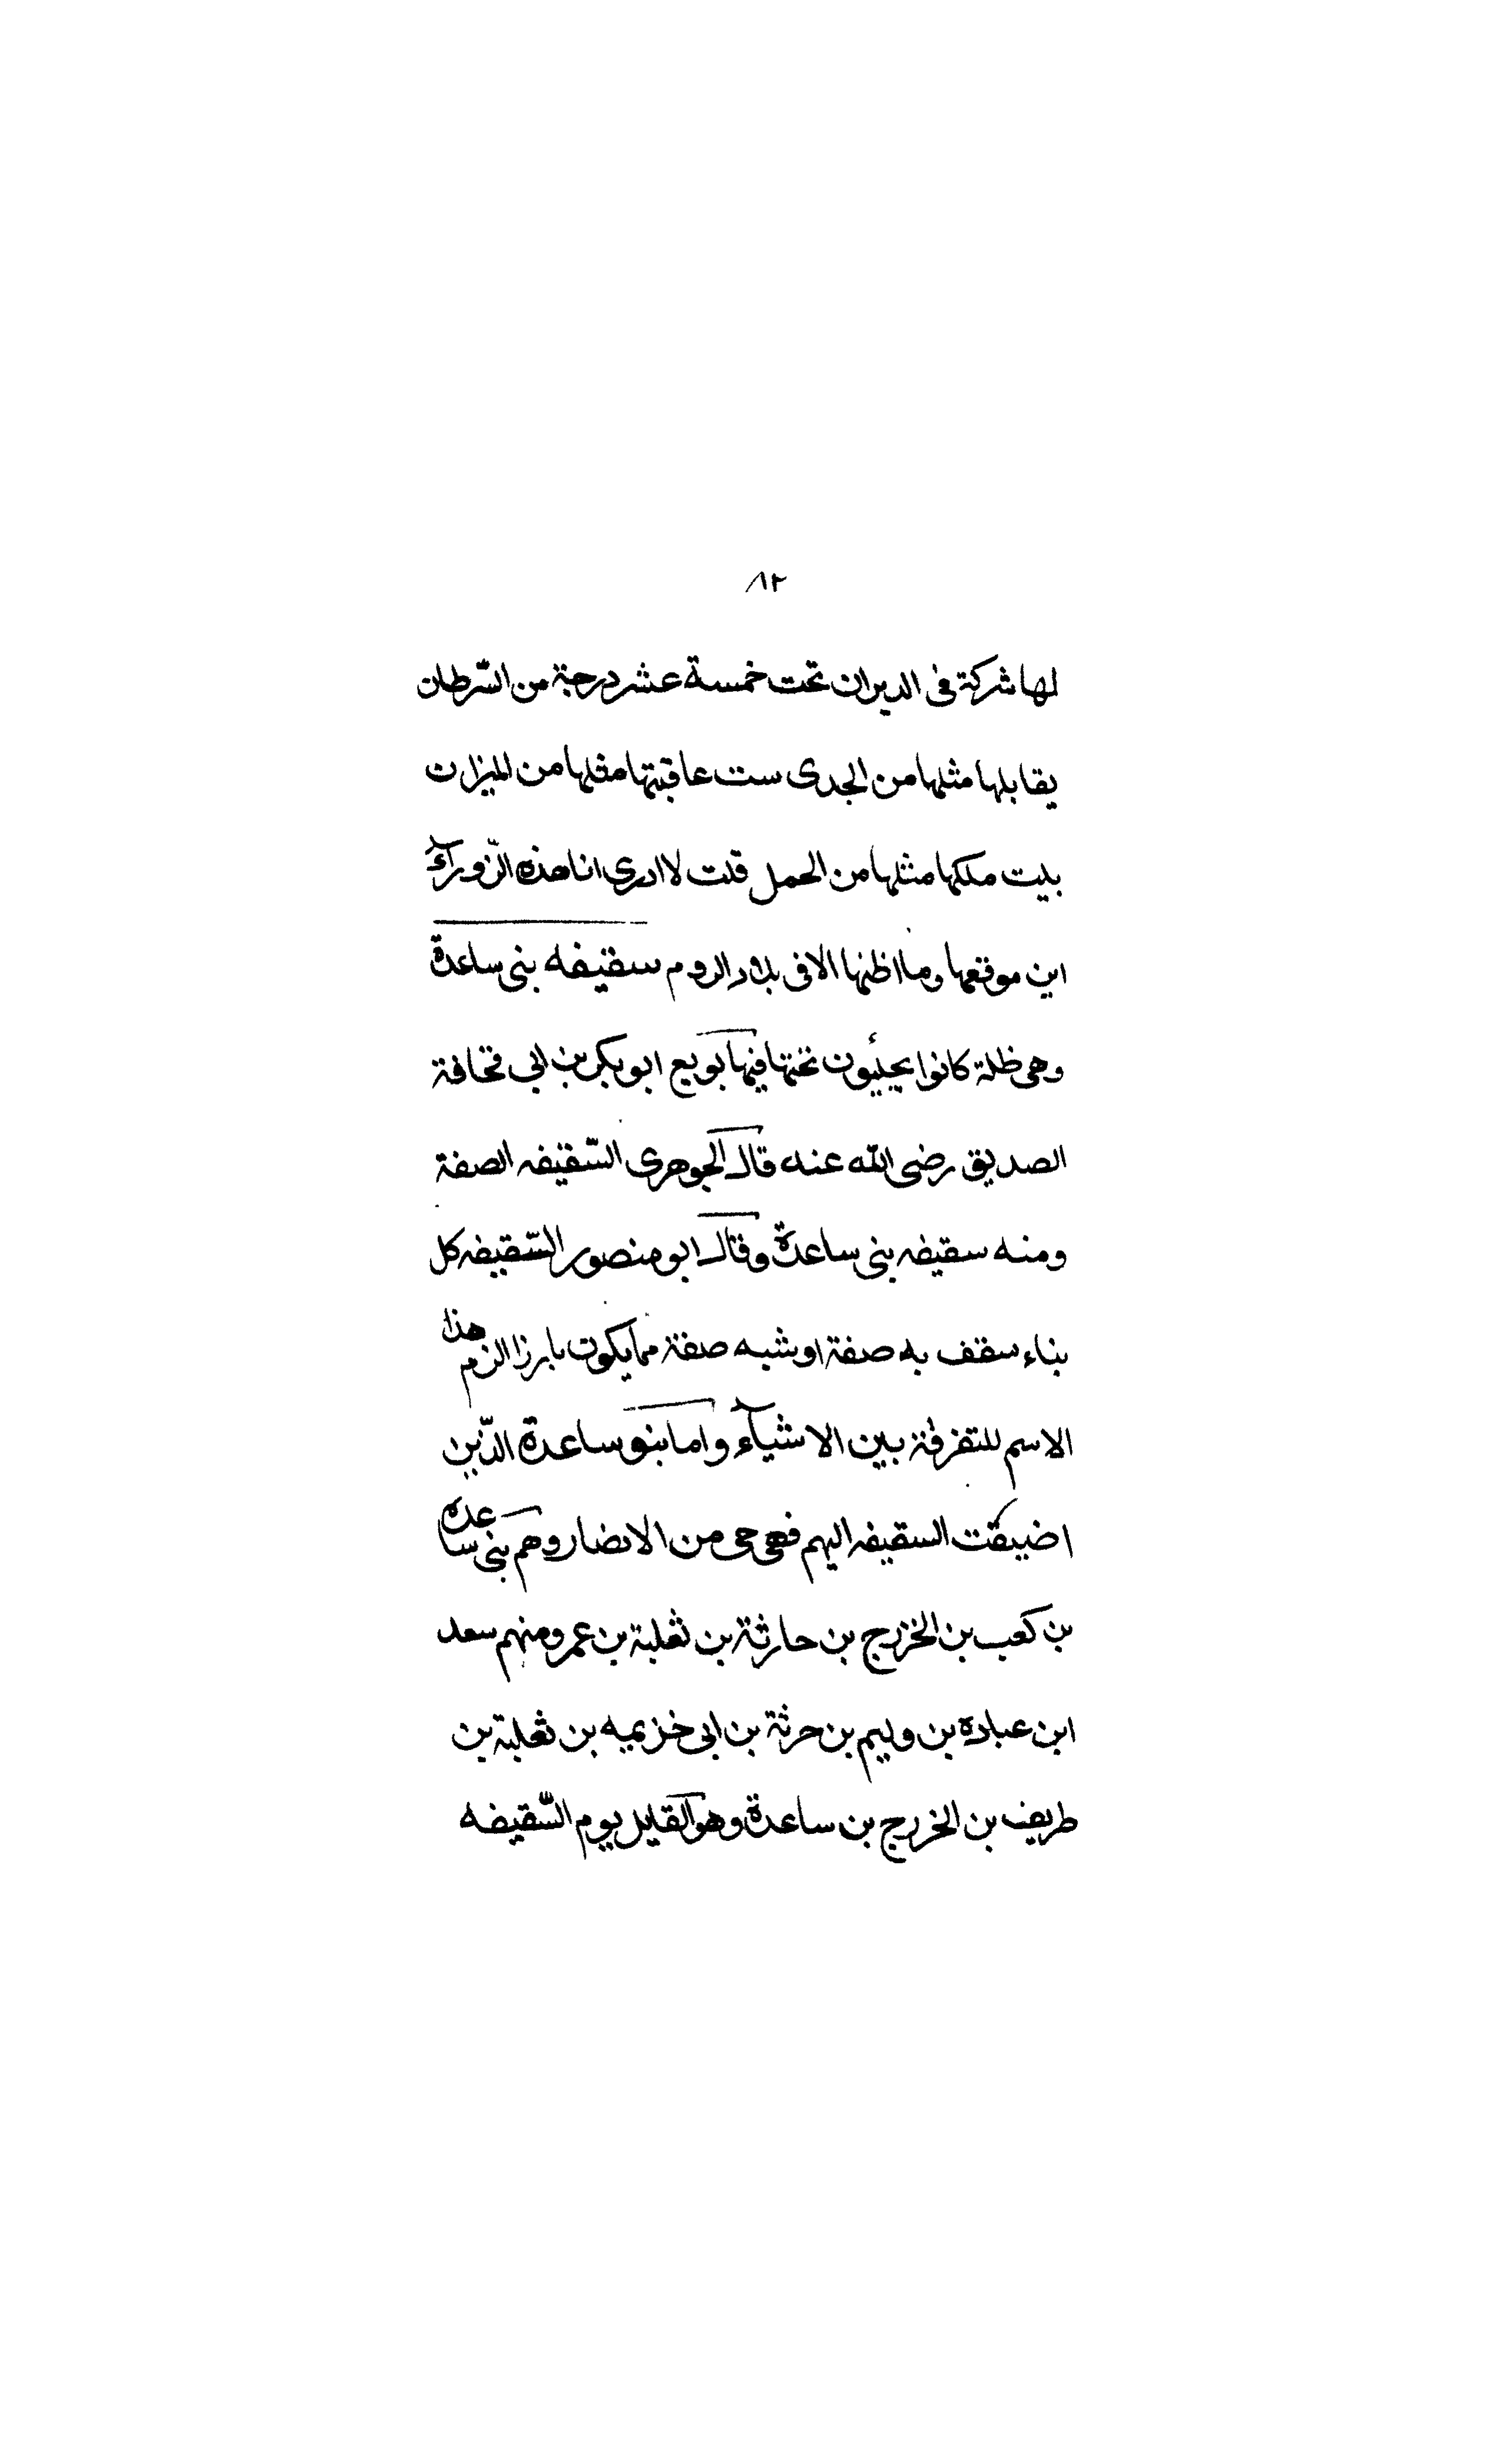 ٨٢
لها شركة فى الدبران تحت خمسة عشر درجة من السّرطان
يقابلها مثلها من الجدى ست عاقبتها مثلها من الميزان
بيت ملكها مثلها من الحمل قلت لا ادرى انا هذه الزّوراء
اين موقعها وما اظنها الا فى بلاد الروم سقيفه بنى ساعدة
وهى ظلة كانوا يجلئون تحتها فيها بويع ابو بكر بن ابى قحافة
الصديق رضى الله عنه قال الجوهرى السّقيفه الصفة
ومنه سقيفه بنى ساعدة وقال ابو منصور السّقيفه كل
بناء سقف به صفة او شبه صفة مما يكون بابرزا الزم هذا
الاسم للتفرقة بين الاشيآء واما بنو ساعدة الذّين
اضيفت السقيفه اليهم فهى حى من الانصار وهم بنى ساعده
بن كعب بن الخزرج بن حارثة بن ثعلبة بن عمرو منهم سعد
ابن عباده بن وليم بن حرثة بن ابى خزيمه بن ثعلبة بن
طريف بن الخزرج بن ساعدة وهو القايل يوم السّقيفه